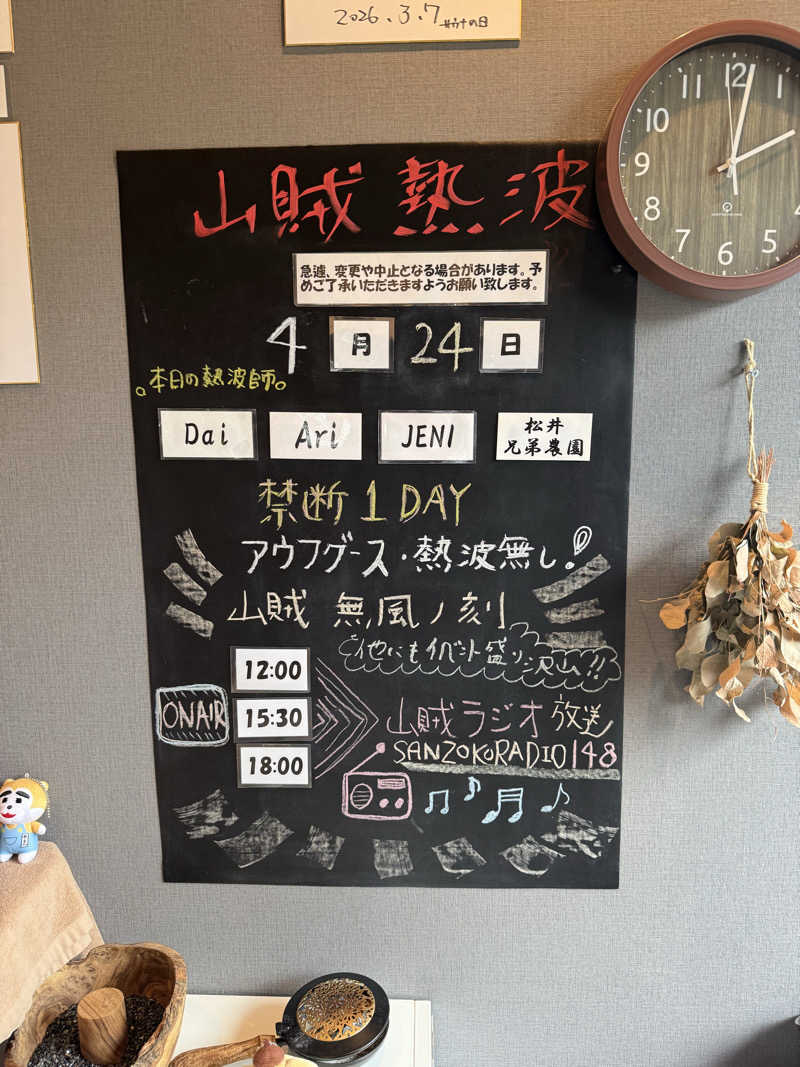 2026.3.7 サウナの日
山賊 熱波
急遽、変更や中止となる場合があります。予
めご了承いただきますようお願い致します。
4月24日
本日の熱波師。
Dai Ari JENI 松井
兄弟農園
禁断1DAY
アウフグース・熱波無し!
山賊 無風ノ刻
他にもイベント盛り沢山!!
12:00
ONAIR 15:30 山賊ラジオ放送
SANZOKURADIO148
18:00
11 12 1
10
9
8 4
7 6 5